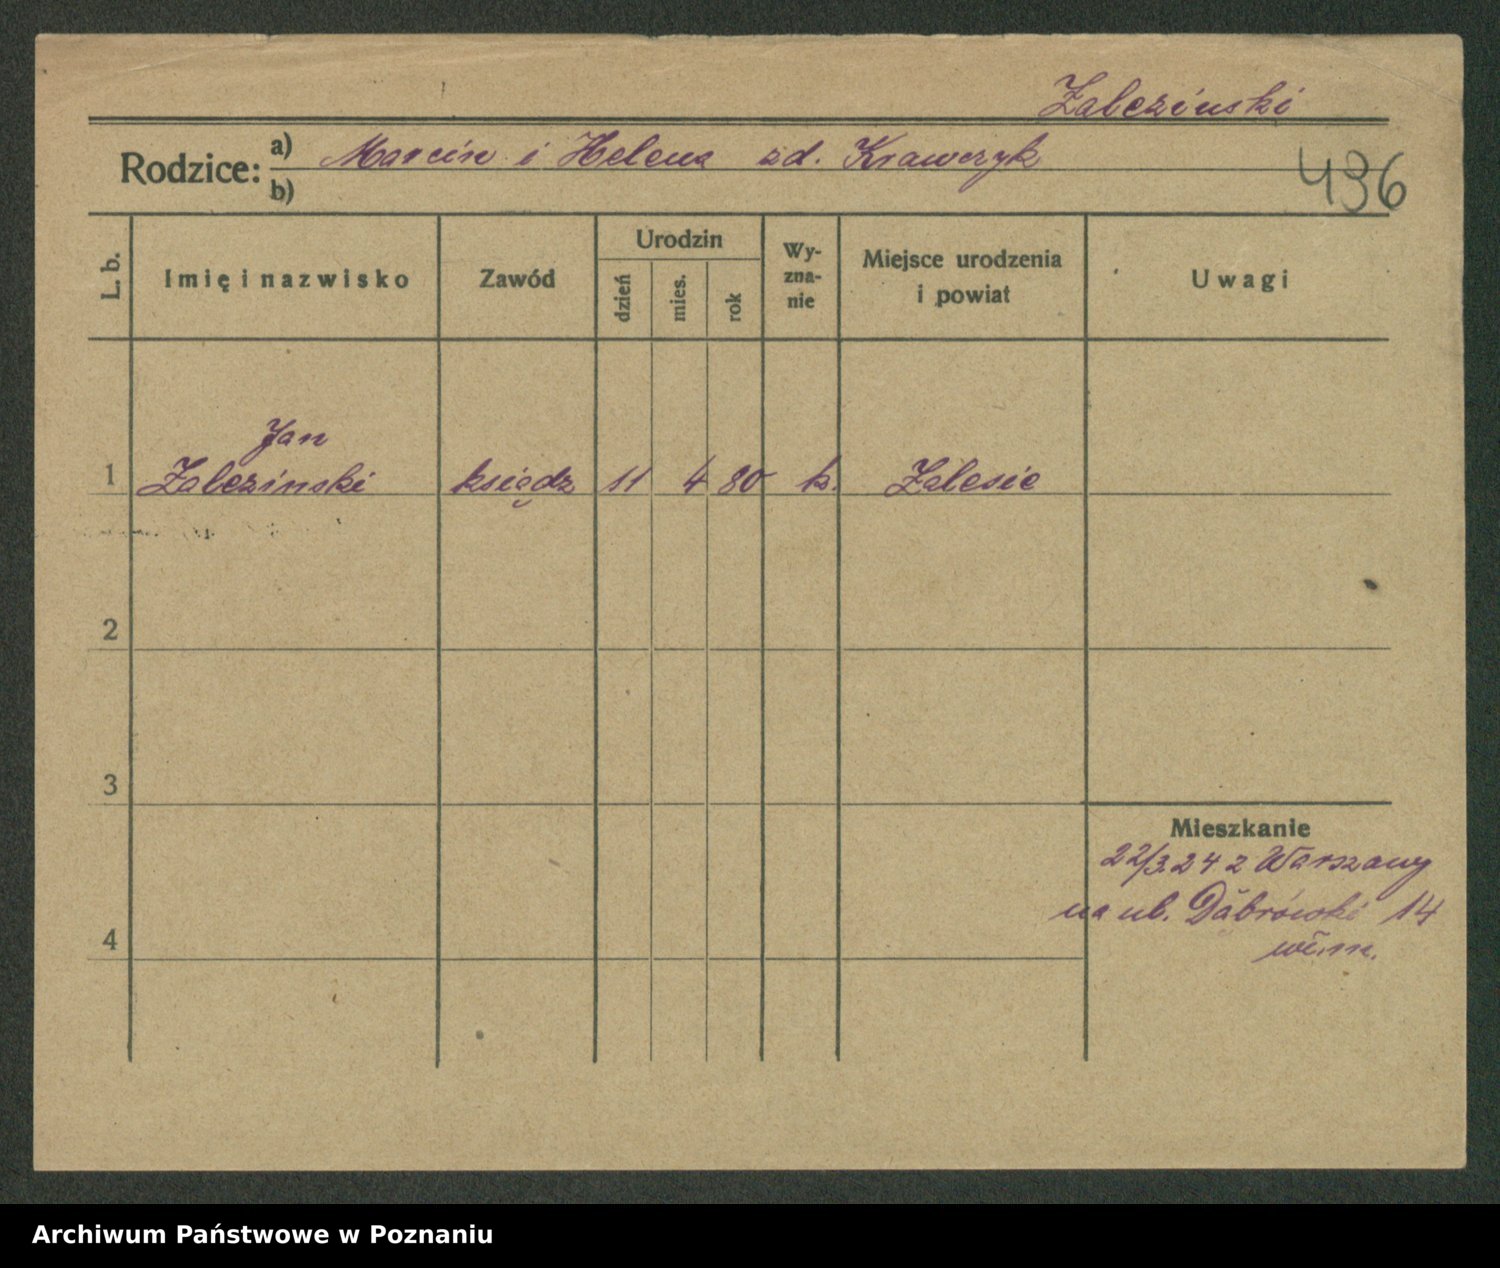 Żaleziński
Rodzice: a) Marcin i Helena zd. Krawczyk
b)
496
L. b.
Imię i nazwisko
Zawód
Urodzin
dzień
mies.
rok
Wy-
zna-
nie
Miejsce urodzenia
i powiat
Uwagi
Jan
1 Zaleziński ksiądz 11 4 80 k. Zalesie
2
3
Mieszkanie
22/3.24 z Warszawy
na ul. Dąbrówski 14
4
Archiwum Państwowe w Poznaniu